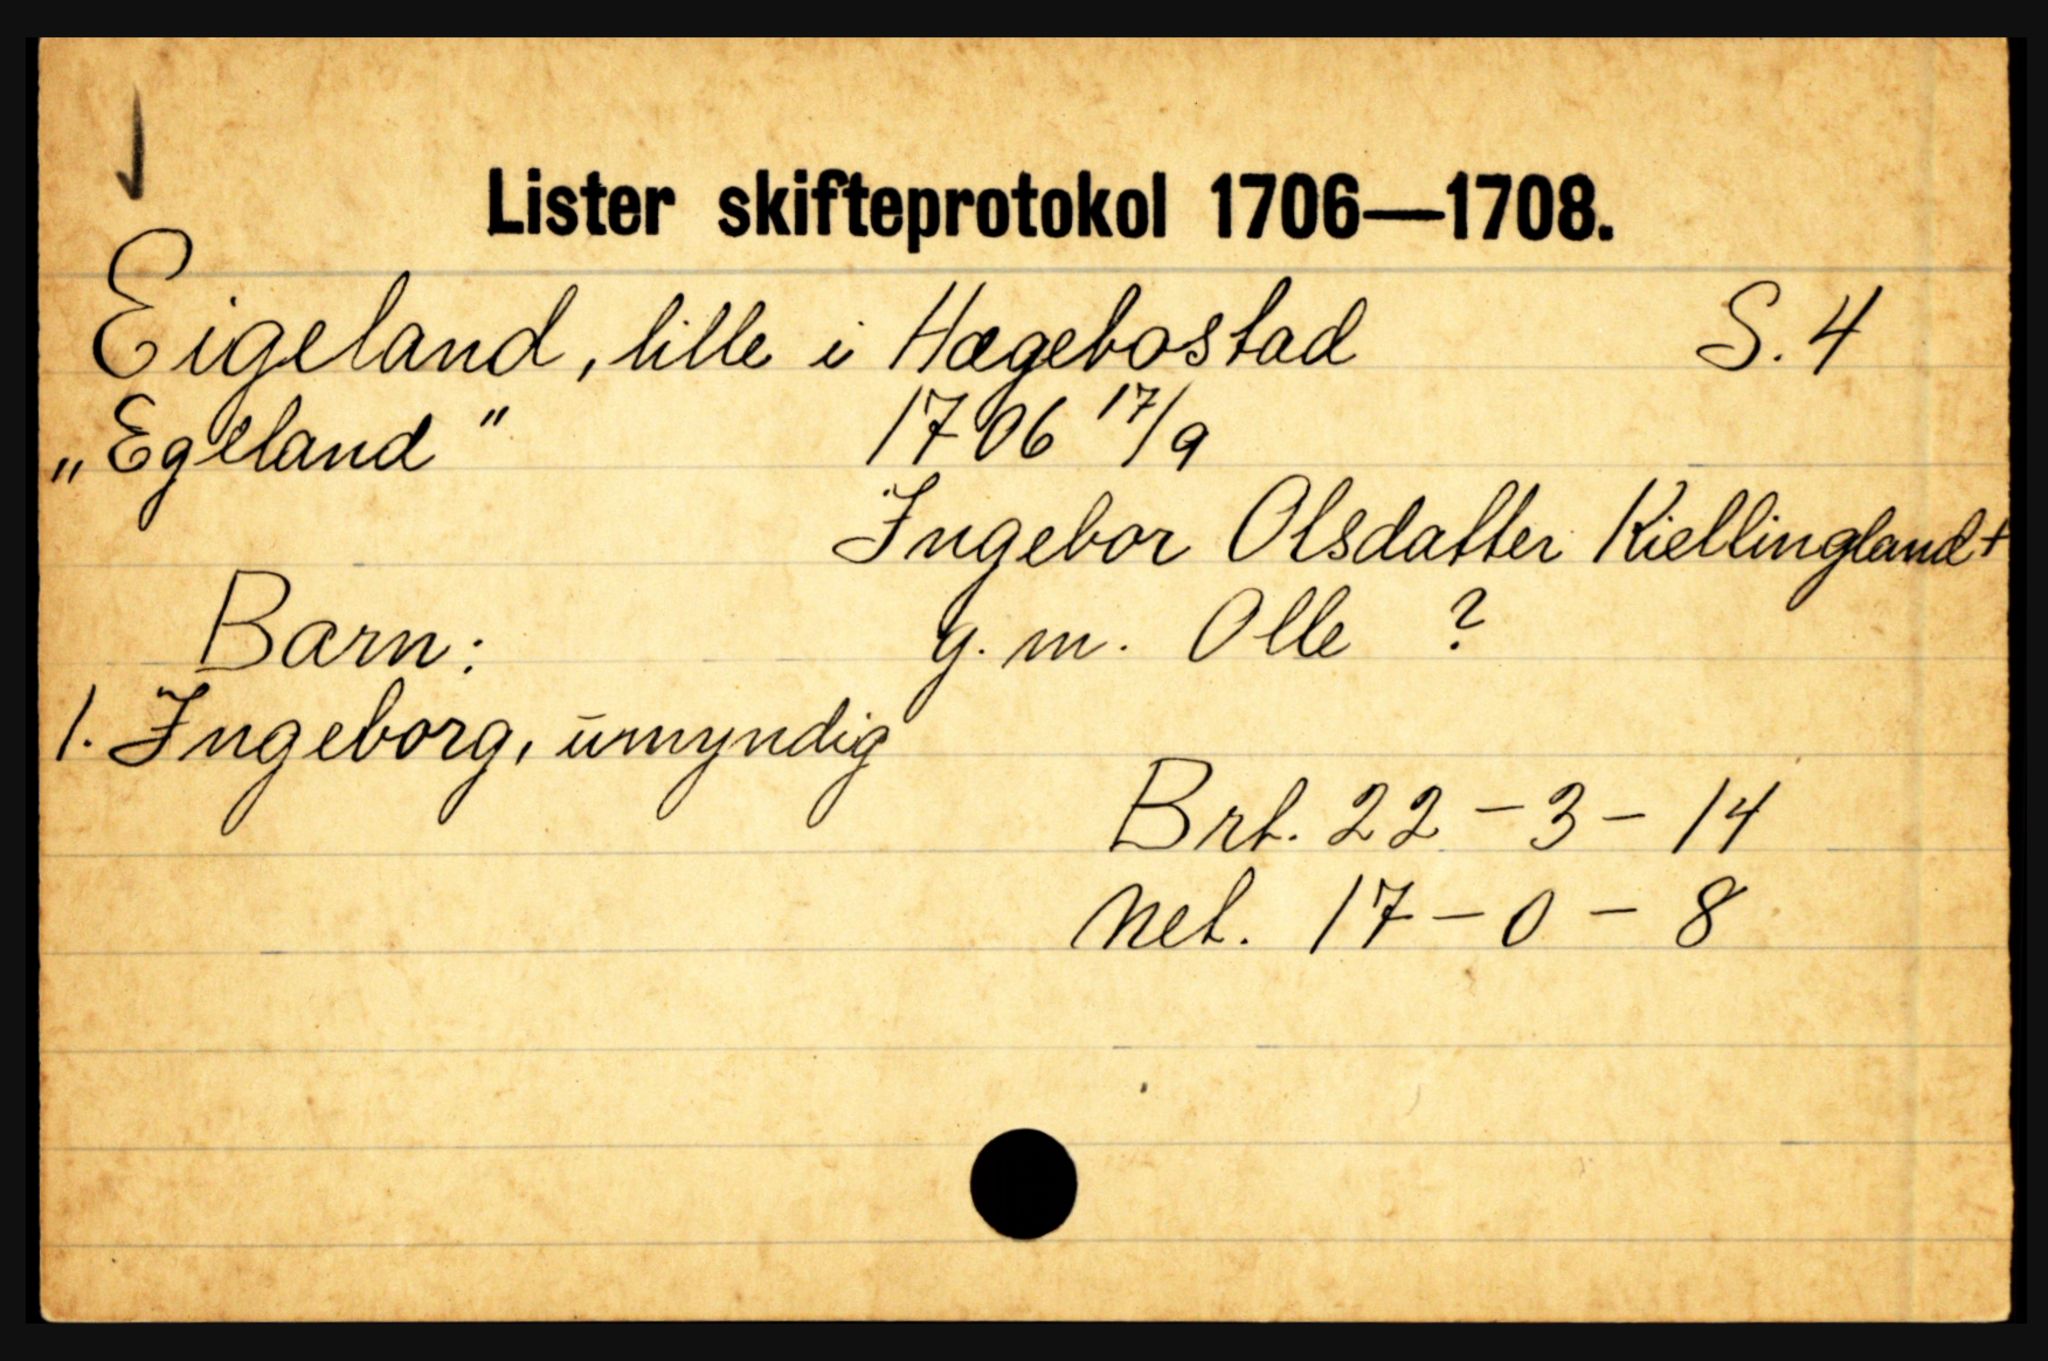 Lister skifteprotokol 1706—1708.
Eigeland, lille i Hægebostad S. 4
„Egeland" 1706 17/9
Ingebor Olsdatter Kiellingland+
Barn: g. m. Olle ?
1. Ingeborg, umyndig
Brt. 22 - 3 - 14
Net. 17 - 0 - 8